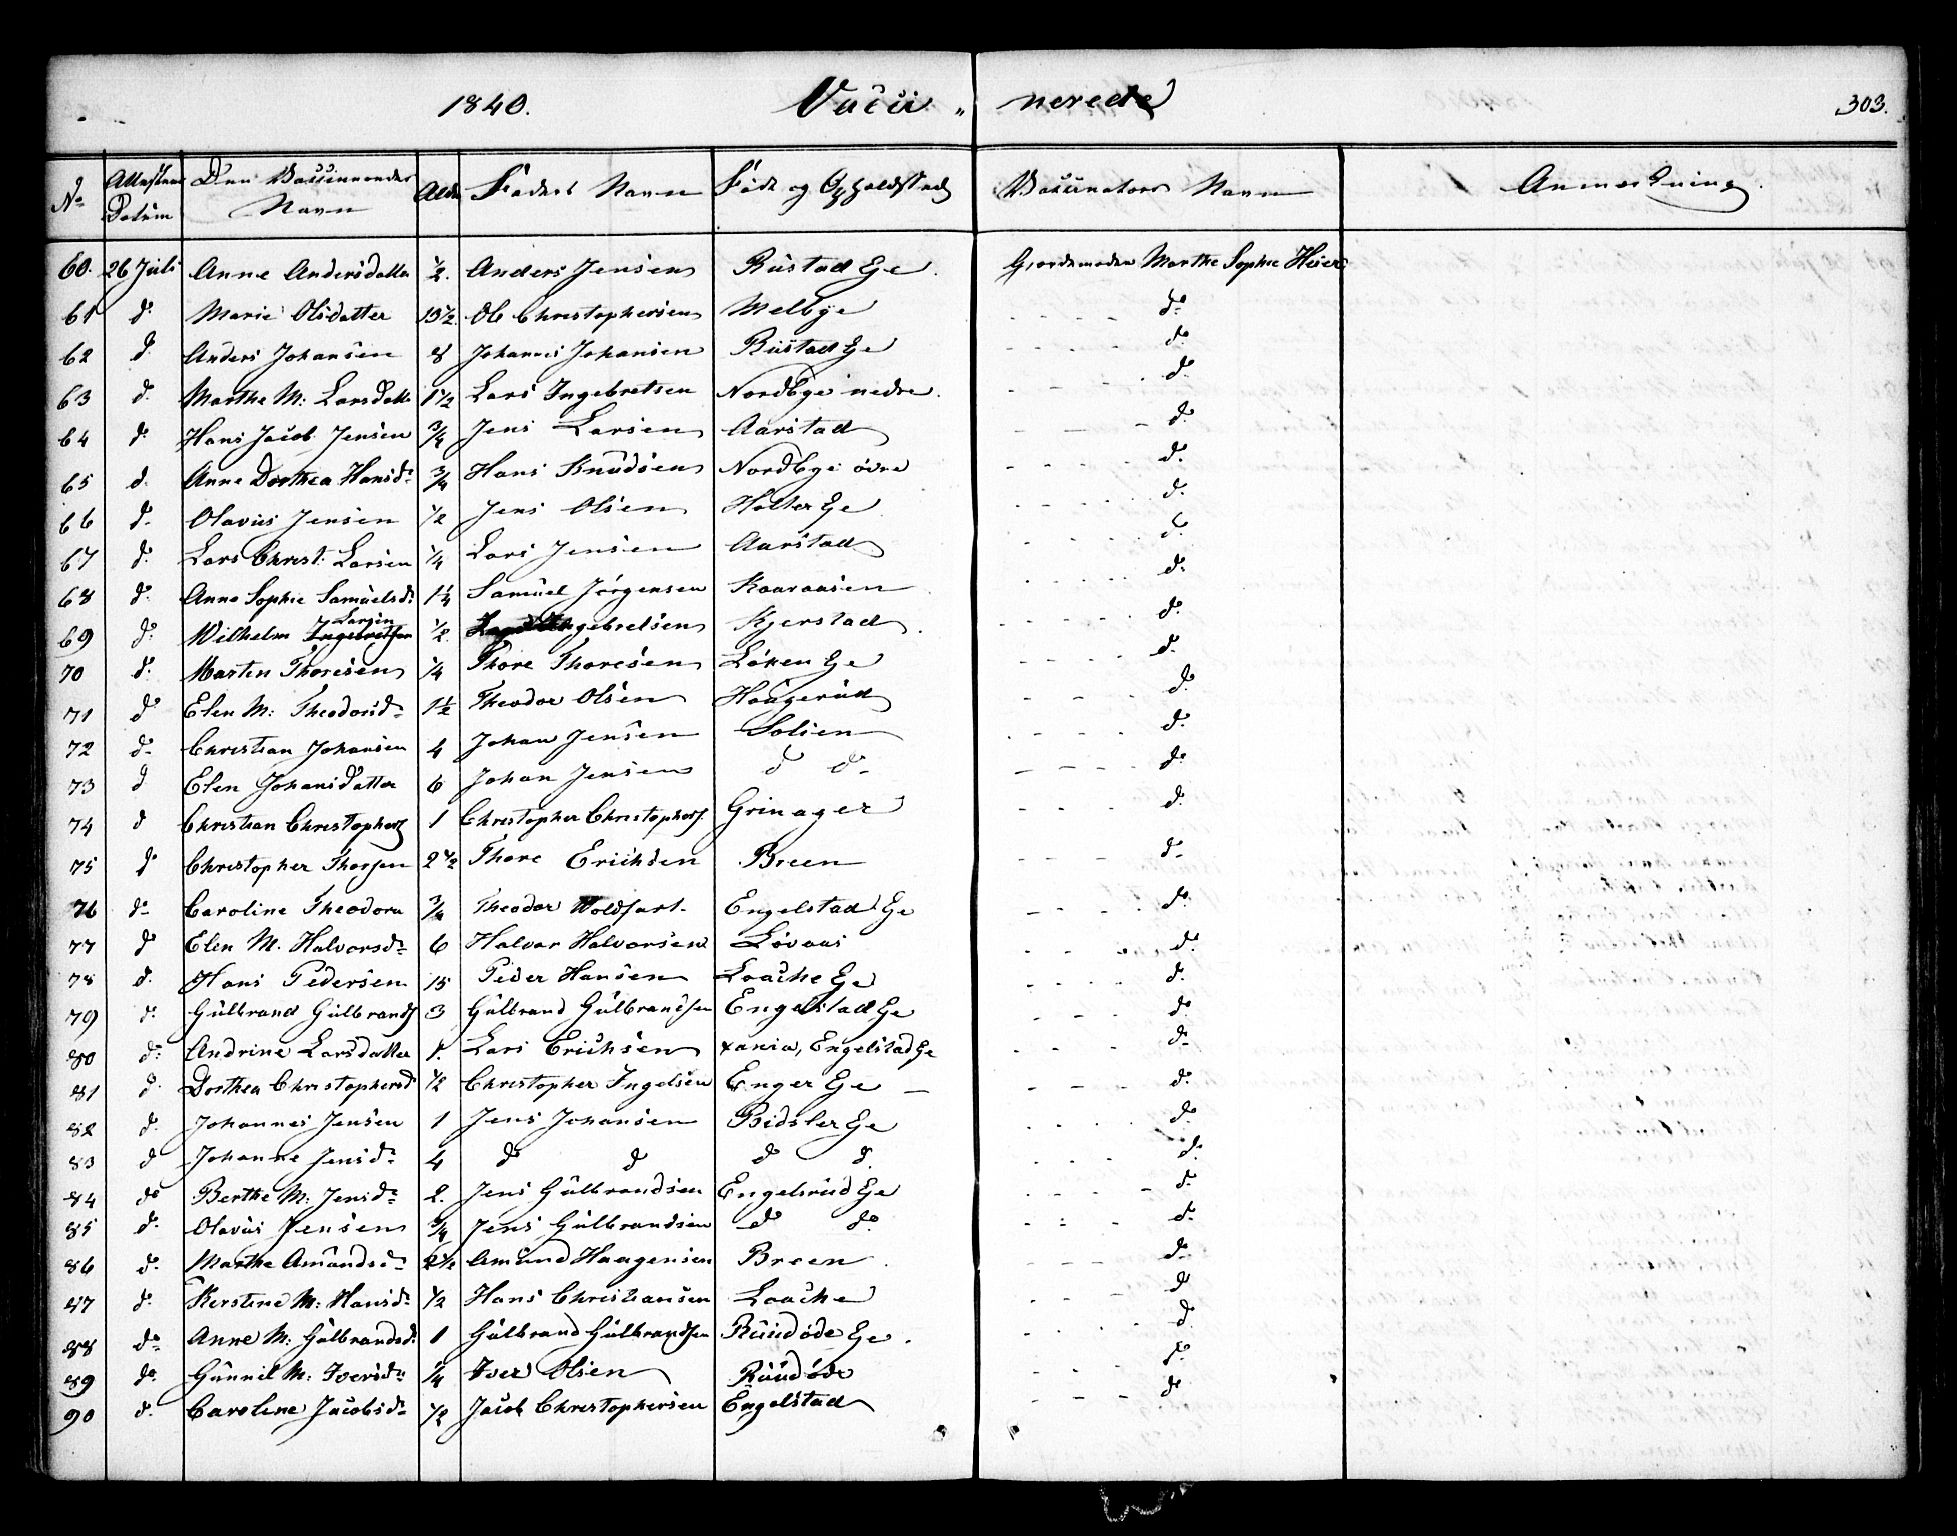 1840. Vacci„ nerede 303.
No Attestens Datum Den Vaccinerendes Navn Alder Faders Navn Føde og Opholdsted Vaccinators Navn Anmærkning.
60. 26 Juli Anne Andersdatter ½. Anders Jensen Rustad Ege Gjordemoder Marthe Sophie Heier
61 do Marie Olsdatter 13½ Ole Christophersen Melbye do
62 d. Anders Johansen 8 Johannes Johansen Rustad Ege do
63 d. Marthe M: Larsdatter 1½ Lars Ingebretsen Nordbye nedre do
64 do Hans Jacob Jensen ¾ Jens Larsen Aarstad do
65 d. Anne Dorthea Hansd: ¾ Hans Knudsen Nordbye övre do
66 do Olavus Jensen ½ Jens Olsen Holter Ege d.
67 do Lars Christ: Larsen ¼ Lars Jensen Aarstad do
68 do Anne Sophie Samuelsd: 1¼ Samuel Jörgensen Kaaraasen do
69 do Wilhelm Ingebretsen Larsen ½ Lars Ingebretsen Kjerstad do
70 do Martin Thoresen ¼ Thore Thoresen Löken Ege do
71 do Elen M: Theodorsd: 1½ Theodor Olsen Haugerud do
72 do Christian Johansen 4 Johan Jensen Solien do
73 d Elen Johansdatter 6 Johan Jensen d do do
74 d Christian Christophers 1 Christopher Christophers. Grinager do
75 do Christopher Thorsen 2½ Thore Erichsen Breen do
76 do Caroline Theodora ¾ Theodor Woldfart. Engelstad Ege do
77 do Elen M. Halvorsd: 6 Halvor Halvorsen Lövaas do
78 d. Hans Pedersen 15 Peder Hansen Laache Ege do
79 d. Gulbrand Gulbrands 3 Gulbrand Gulbrandsen Engelstad Ege do
80 do Andrine Larsdatter 1. Lars Erichsen xania, Engelstad Ege do
81 d. Dorthea Christophersd ½ Christopher Ingelsen Enger Ege do
82 d. Johannes Jensen 1 Jens Johansen Bidsler Ege do
83 d Johanne Jensd: 4 do d do d. do
84 do Berthe M: Jensd: 2. Jens Gulbrandsen Engelsrud Ege do
85 d. Olavus Jensen ¾ Jens Gulbrandsen do do do
86 do Marthe Amundsd: 2½ Amund Haagensen Breen do
87 do Kerstine M: Hansd: ½ Hans Christiansen Laache do
88 do Anne M: Gulbrandsd: 1 Gulbrand Gulbrandsen Ruudöde Ege. d.
89 do Gunnil M: Iversd: ¼ Iver Olsen Ruudöde do
90 d. Caroline Jacobsd: ½ Jacob Christophersen Engelstad do